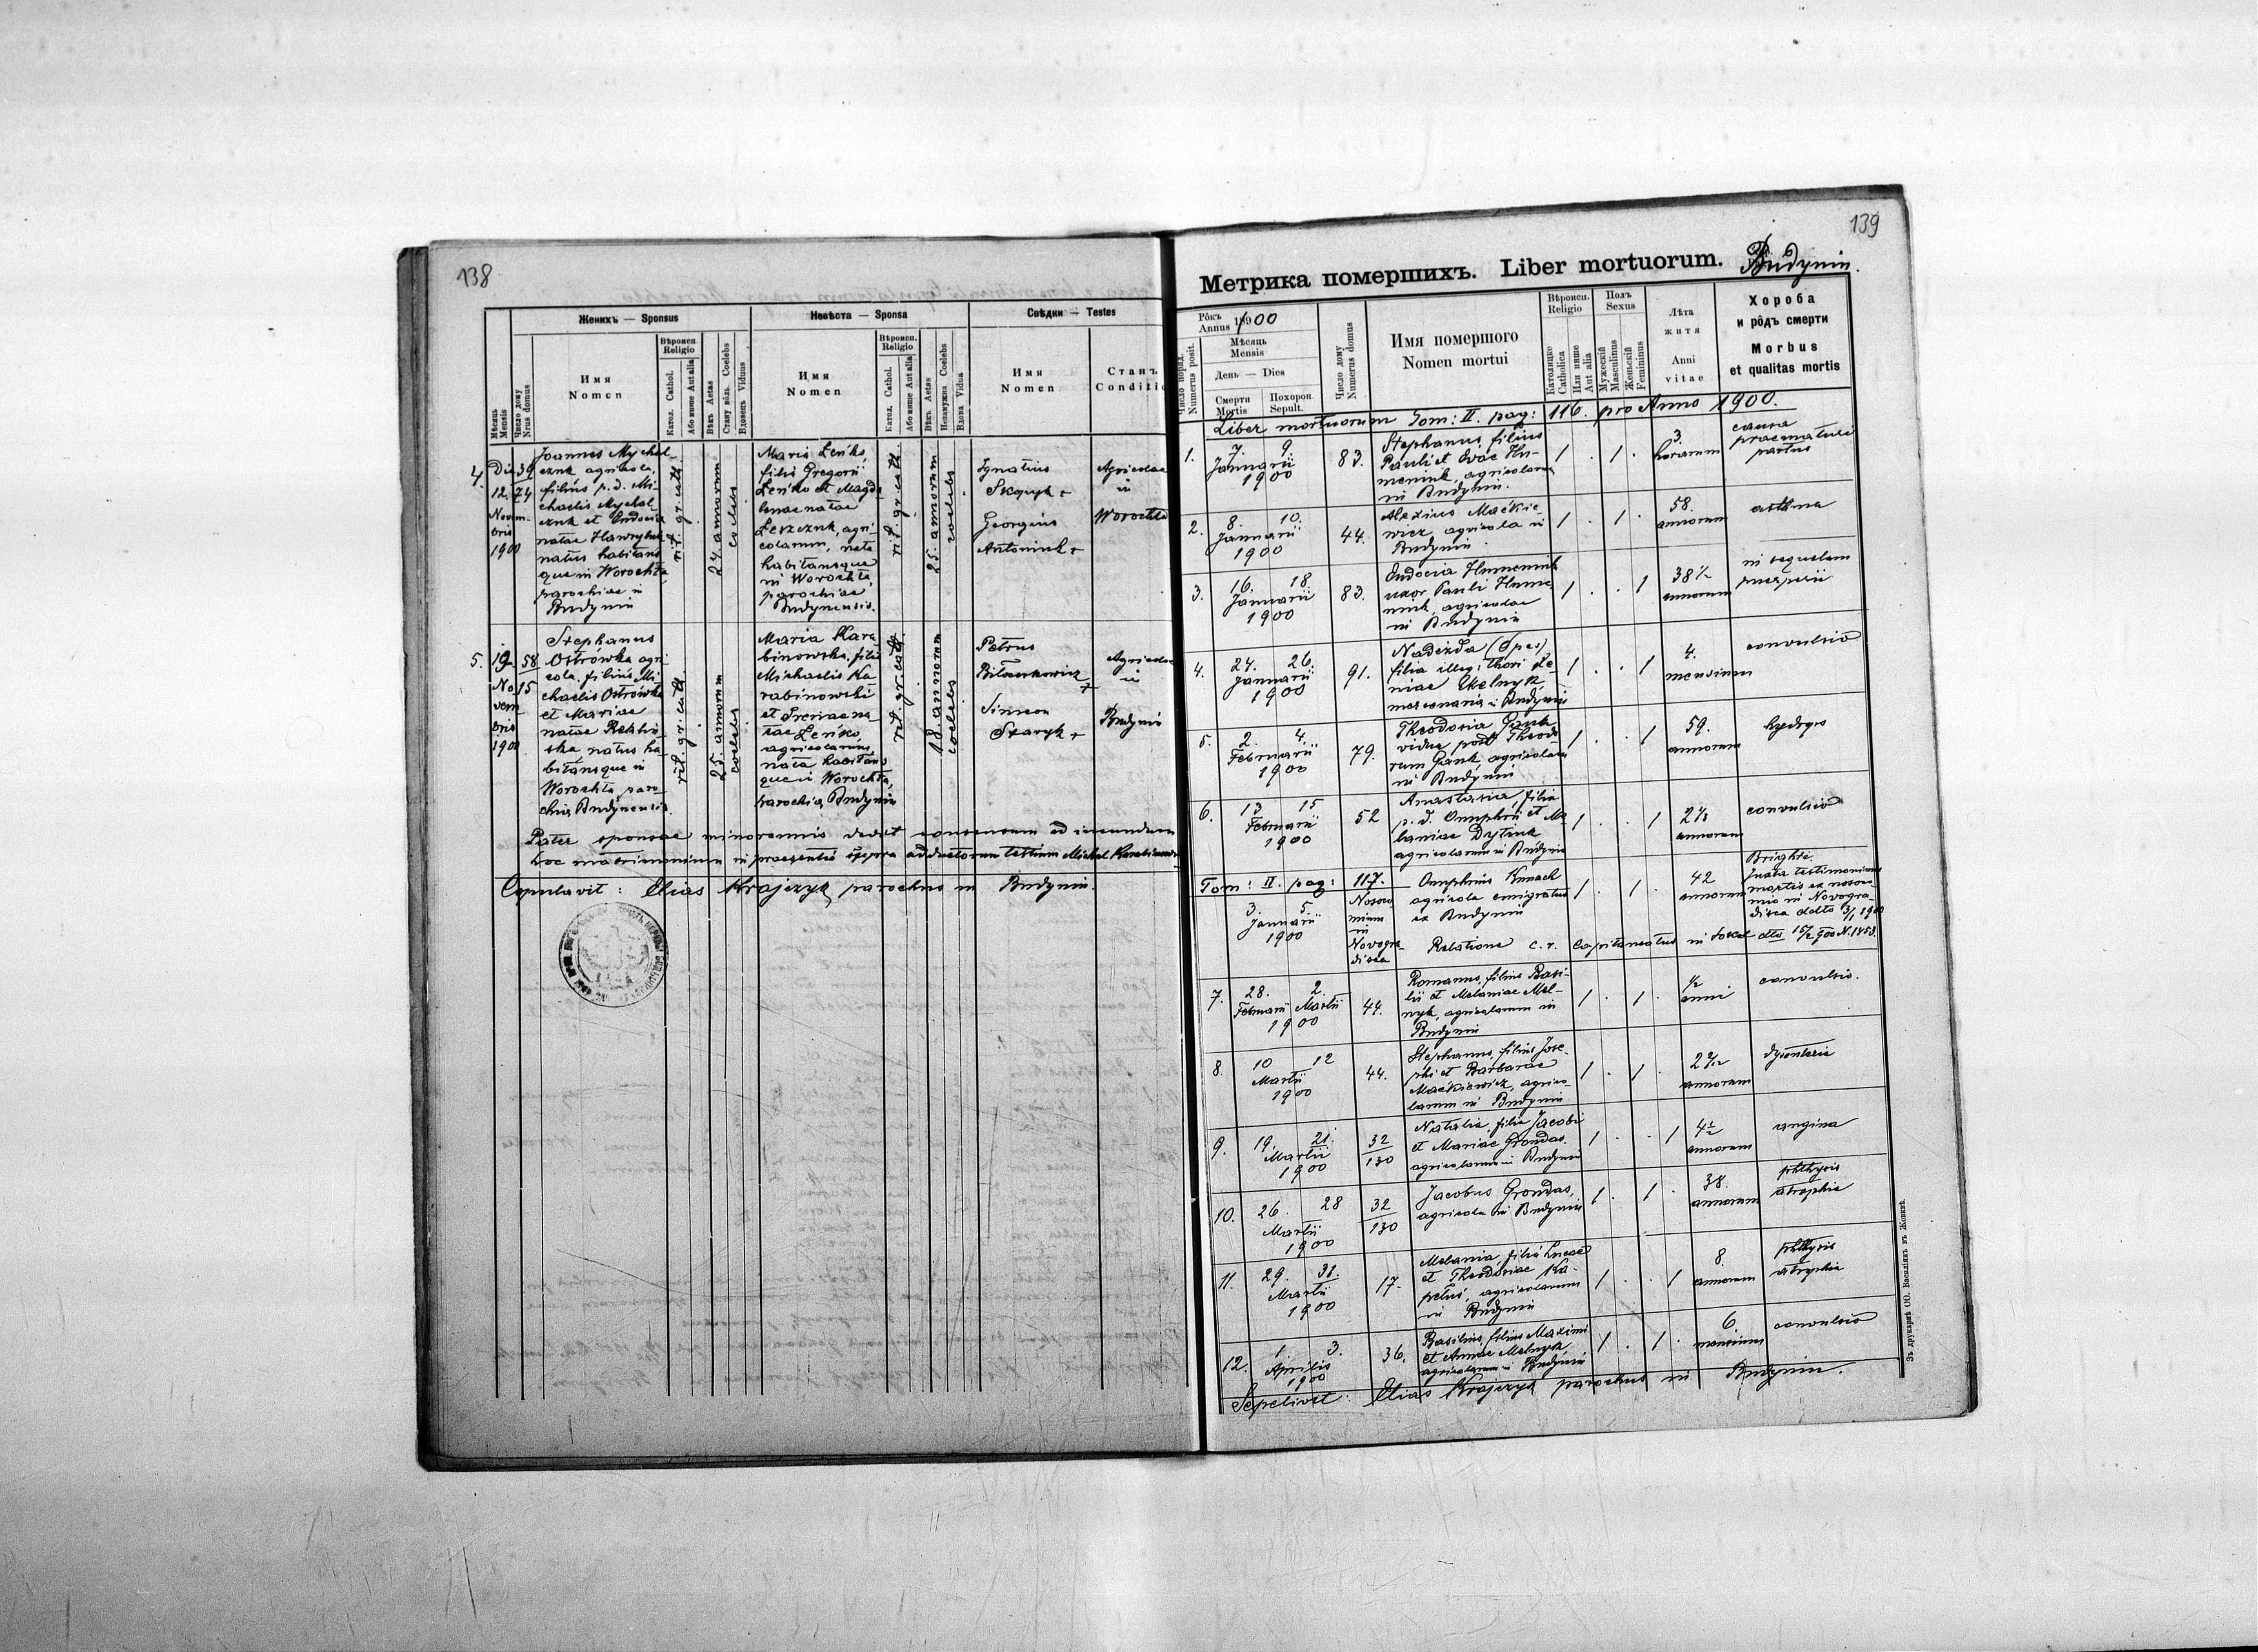 138
Женихъ — Sponsus
Невѣста — Sponsa
Свѣдки — Testes
Мѣсяць
Mensis
Число дому
Nrus domus
Имя
Nomen
Вѣроисп.
Religio
Катол. Cathol.
Або инше Aut alia
Вѣкъ Aetas
Стану вôльн. Coelebs
Вдовець Viduus
Имя
Nomen
Вѣроисп.
Religio
Катол. Cathol.
Або инше Aut alia
Вѣкъ Aetas
Незамужна Coelebs
Вдова Vidua
Имя
Nomen
Станъ
Conditio
4.
Die
12.
Novem-
bris
1900
39
74
Joannes Mychal-
czuk agricola,
filius p.d. Mi-
chaelis Mychal-
czuk et Eudocia
natae Hawryluk
natus habitans
que in Worochta
parochiae in
Budynin
rit. gr. cath.
24 annorum
coelebs
Maria Leńko,
filia Gregorii
Leńko et Magda
lenae natae
Leszczuk, agri-
colarum, nata
habitansque
in Worochta,
parochiae
Budynensis.
rit. gr. cath.
25. annorum
coelebs
Ignatius
Georgius
Antoniuk +
Agricolae
in
Worochta
5.
19.
No-
vem
bris
1900
58
15
Stephanus
Ostrówka agri
cola, filius Mi
chaelis Ostrówka
et Mariae
natae
natus ha
bitansque in
Worochta paro
chia Budynensis
rit. gr. cath.
25. annorum
coelebs
Maria Kara
binowska, filia
Michaelis Ka
rabinowski
et Ireniae na
tae Leńko,
agricolarum,
nata habitans
que in Worochta,
parochia Budynin
rit. gr. cath.
18. annorum
coelebs
Petrus
+
Simeon
Staryk +
Agricolae
in
Budynin
Pater sponsae minorennis dedit consensum ad ineundum
hoc matrimonium in praesentia supra adductorum testium Michal Karabinowski
Copulavit: Elias Krajczyk parochus in Budynin.
139
Метрика помершихъ. Liber mortuorum. Budynin.
Рôкъ
Annus 1900
Число поряд.
Numerus posit.
Мѣсяць
Mensis
День — Dies
Смерти
Mortis
Похорон.
Sepult.
Число дому
Numerus domus
Имя помершого
Nomen mortui
Вѣроисп.
Religio
Католицке
Catholica
Или инше
Aut alia
Полъ
Sexus
Мужескій
Masculinus
Женьскій
Femininus
Лѣта
житя
Anni
vitae
Хороба
и рôдъ смерти
Morbus
et qualitas mortis
Liber mortuorum Tom: II. pag: 116. pro Anno 1900.
1.
7. 9.
Januarii
1900
83.
Stephanus, filius
Pauli et Evae Hu-
meniuk, agricolarum
in Budynin.
1 . 1 .
3.
horarum
causa
praematuri
partus
2.
8. 10.
Januarii
1900
44.
Alexius Maćkie-
wicz agricola in
Budynin
1 . 1 .
58.
annorum
asthma
3.
16. 18.
Januarii
1900
83.
Eudocia Humeniuk
uxor Pauli Hume
niuk, agricolae
in Budynin
1 . . 1
38½
annorum
in sequelam
puerperii
4.
24. 26.
Januarii
1900
91.
Nadeżda (Spes)
filia illeg: thori Xe
niae Melnyk,
in Budynin
1 . . 1
4.
mensium
convulsio
5.
2. 4.
Februarii
1900
79.
Theodosia Gank
vidua post Theodo
rum Gank, agricolam
in Budynin
1 . . 1
59.
annorum
hydrops
6.
13 15
Februarii
1900
52
Anastasia, filia
p. d. Onuphrii et Me
laniae Dytiuk
agricolarum in Budynin
1 . . 1
annorum
convulsio
Tom: II. pag: 117.
3. 5.
Januarii
1900
Nosoco
mium
in
Novogra
disca
Onuphrius Kunach
agricola emigratus
ex Budynin
1 . 1 .
42
annorum
Brightii.
Juxta testimonium
mortis ex nosoco
mio in Novogra-
disca ddto 3/1 1900
Relatione c. r. Capitaneatus in Sokal dto 15/2 900 N. 1858.
7.
28. 2.
Februarii Martii
1900
44.
Romanus, filius Basi-
lii et Melaniae Mel-
nyk, agricolarum in
Budynin
1 . 1 .
½
anni
convulsio.
8.
10 12
Martii
1900
44.
Stephanus, filius Jose-
phi et Barbarae
Maćkiewicz, agrico-
larum in Budynin
1 . 1 .
annorum
dysenteria
9.
19. 21.
Martii
1900
32
130
Natalia, filia Jacobi
et Mariae Grondas,
agricolarum in Budynin
1 . . 1
4½
annorum
angina
10.
26. 28
Martii
1900
32
130
Jacobus Grondas,
agricola in Budynin
1 . 1 .
38.
annorum
phthysis
atrophia
11.
29. 31.
Martii
1900
17.
Melania, filia Lucae
et Theodosiae Ka-
peluś, agricolarum
in Budynin
1 . . 1
8.
annorum
phthysis
atrophia
12.
1 3.
Aprilis
1900
36.
Basilius, filius Maximi
et Annae Melnyk,
agricolarum in Budynin
1 . 1 .
6.
mensium
convulsio
Sepelivit: Elias Krajczyk parochus in Budynin.
Зъ друкарнѣ ОО. Василіянъ въ Жовквѣ.